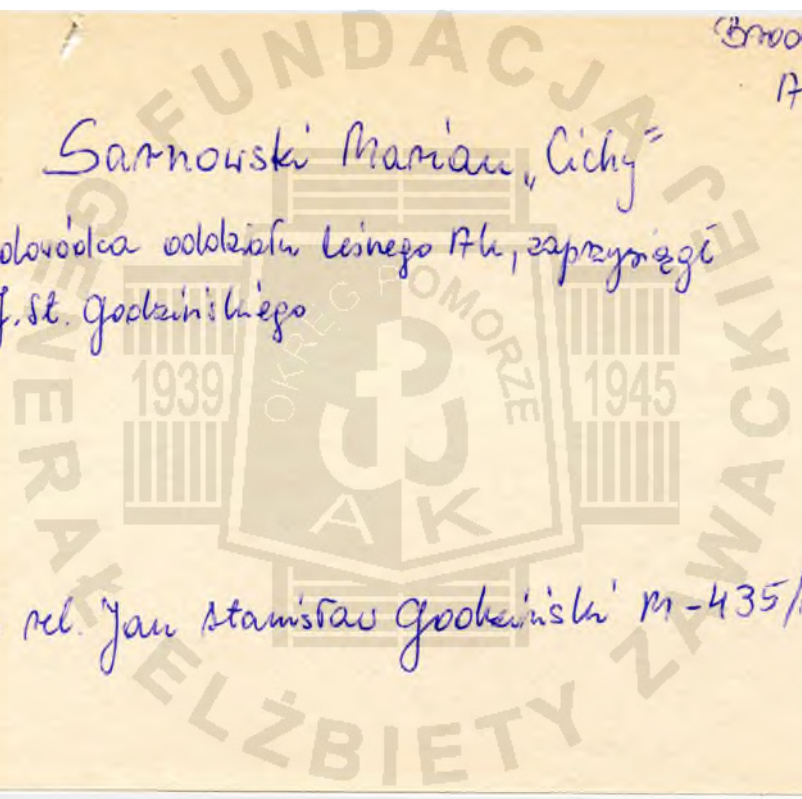 Brod
A
Sarnowski Marian „Cichy”
dowódca oddziału leśnego AK, zaprzysięgł
J. St. Godzińskiego
rel. Jan Stanisław Godziński M-435/
FUNDACJA
GENERAŁ ELŻBIETY ZAWACKIEJ
OKRĘG POMORZE
1939
1945
A K